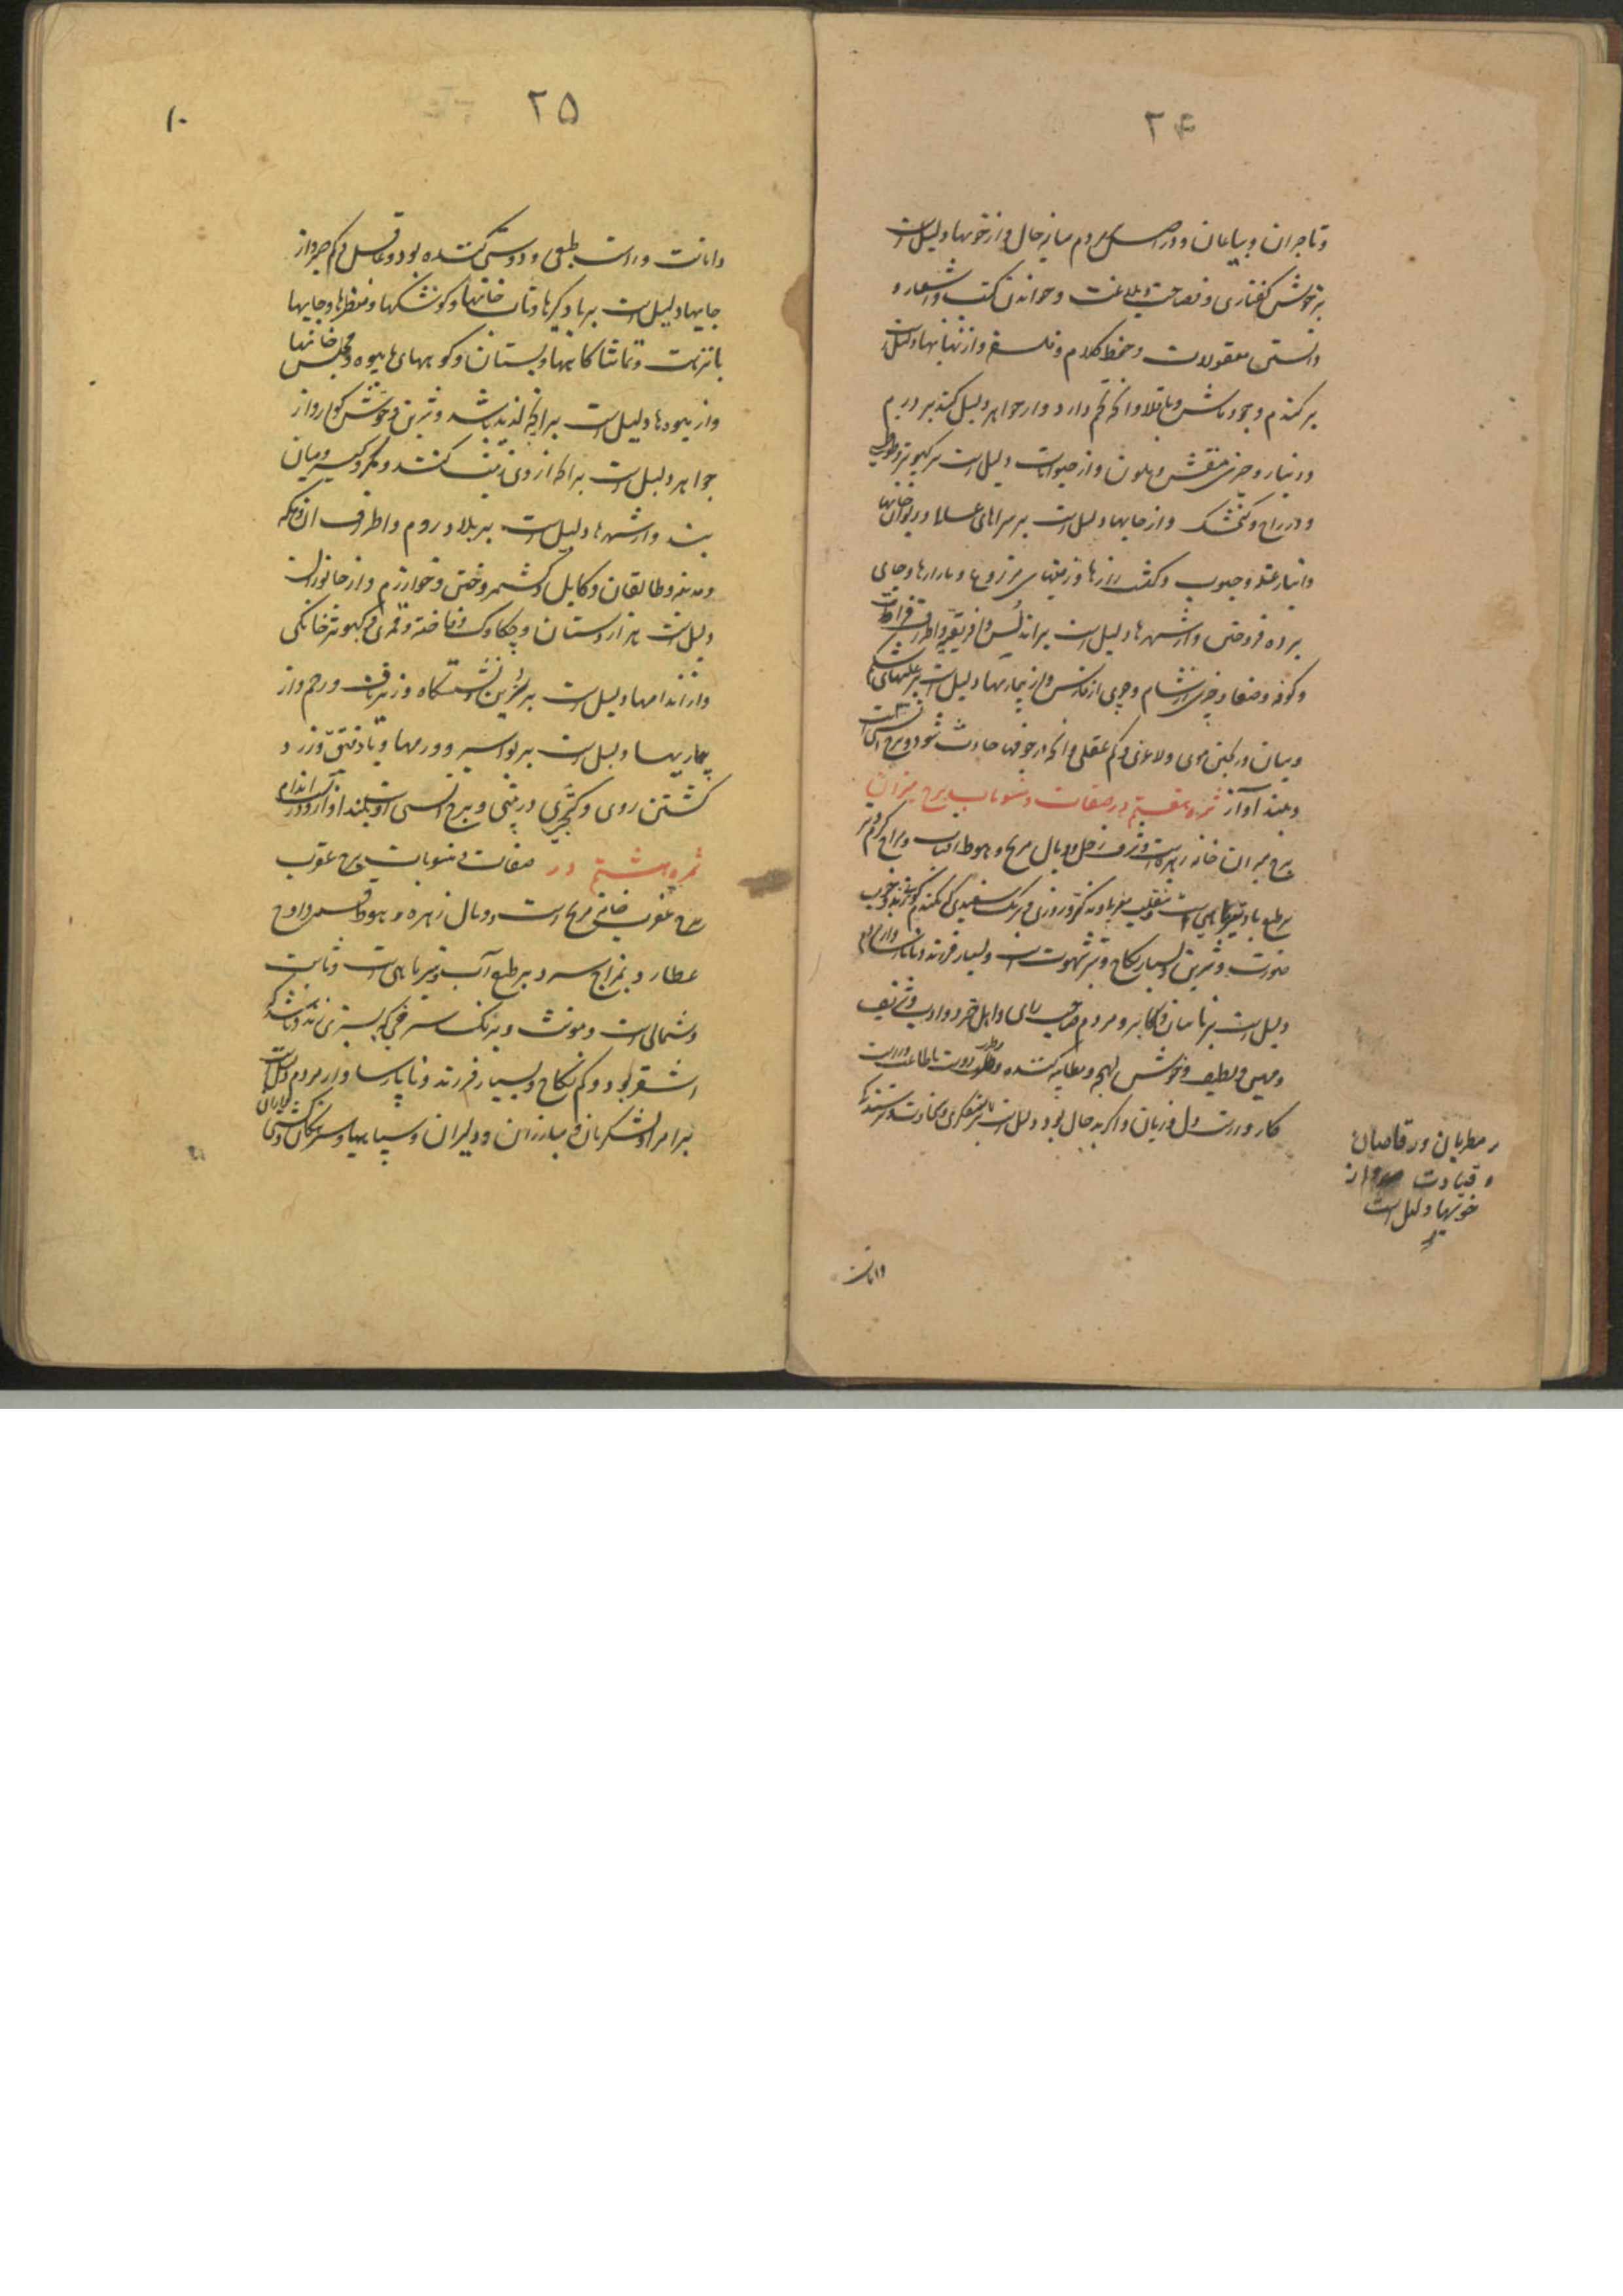 ۲۴
و تاجران و بیاعان و در اصل مردم میانه حال و از خویها دلیل است
بر خوش گفتاری و فصاحت و بلاغت و خواندن کتب و اشعار و
دانستن معقولات و حفظ کلام و فلسفه و از نباتها دلیل است
بر گندم و جو و ماش و باقلا و انکه تخم دارد و از جواهر دلیل کند بر درم
و دینار و چیزی منقش و ملون و از حیوانات دلیل است بر کبوتر و طوطی
و دراج و کنجشک و از جایها دلیل است بر سراهای علما و دیوان خانها
و انبار غله و حبوب و کشت زارها و زمینهای مزروع و بازارها و جای
برده فروختن و از شهرها دلیل است بر اندلس و افریقیه و اطراف فرات
و کوفه و صنعا و چیزی از شام و چیزی از فارس و از بیماریها دلیل است بر علتهای شکم
و میان و ریختن موی و لاغری و کم عقلی و انکه در خونها حادث شود و برج انسی است
و بلند آواز ثمره هفتم در صفات و منسوبات برج میزان
برج میزان خانه زهره است و شرف زحل و وبال مریخ و هبوط افتاب و مزاج گرم و تر
بر طبع باد
صورت و شیرین و بسیار نکاح و تیز شهوت است و بسیار فرزند
دلیل است بر و اکابر و مردم صاحب رای و اهل خرد و ادیب و شریف
و لطیف و خوش لهجه و مطایبه کننده
کار و درست دل و زبان و اگر بد حال بود دلیل است
مطربان و رقاصان
و قیادت از
خویها دلیل است
و امانت
۲۵
۱۰
و امانت و راست طبعی و دوستی کننده بود و عاقل و کم حرد و از
جایها دلیل است بر بادگیرها و خانها و کوشکها و منظرها و جایها
با نزهت و تماشا کاهها و بستان و کوههای با میوه و مجلس خانها
و از میوه‌ها دلیل است بر انچه لذیذ باشد و شیرین و خوش کوار و از
جواهر دلیل است بر انکه از وی زینت کنند و کمر و میان
بند و از شهرها دلیل است بر بلاد روم و اطراف ان و مکه
و مدینه و طالقان و کابل و کشمیر و ختن و خوارزم و از جانوران
دلیل است هزار دستان و چکاوک و فاخته و قمری و کبوتر خانکی
و از اندامها دلیل است بر سرین و نشستگاه و زیر ناف و رحم و از
بیماریها دلیل است بر بواسیر و ورمها و باد فتق و زرد
کشتن روی و کجی در بینی و برج انسی است و بلند اواز و در
ثمره هشتم در صفات و منسوبات برج عقرب
برج عقرب خانهٔ مریخ است و وبال زهره و هبوط قمر و اوج
عطارد بمزاج سرد و تر طبع آب و تیرماهی است و ثابت
و شمالی است و مونث و برنگ سرخی که بسبزی زند و باشد که
اشقر بود و کم نکاح و بسیار فرزند و ناپارسا و از مردم دلیل است
بر امرا و لشکریان و مبارزان و دلیران و سپاهیها و سرهنکان و